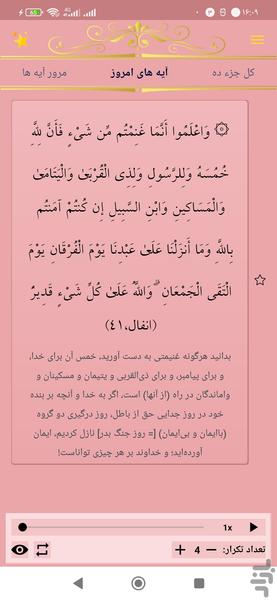 ۱۶:۰۹
کل جزء ده
آیه های امروز
مرور آیه ها
۞ وَاعْلَمُوا أَنَّمَا غَنِمْتُم مِّن شَيْءٍ فَأَنَّ لِلَّهِ
خُمُسَهُ وَلِلرَّسُولِ وَلِذِي الْقُرْبَىٰ وَالْيَتَامَىٰ
وَالْمَسَاكِينِ وَابْنِ السَّبِيلِ إِن كُنتُمْ آمَنتُم
بِاللَّهِ وَمَا أَنزَلْنَا عَلَىٰ عَبْدِنَا يَوْمَ الْفُرْقَانِ يَوْمَ
الْتَقَى الْجَمْعَانِ ۗ وَاللَّهُ عَلَىٰ كُلِّ شَيْءٍ قَدِيرٌ
(انفال،۴۱)
بدانید هرگونه غنیمتی به دست آورید، خمس آن برای خدا،
و برای پیامبر، و برای ذی‌القربی و یتیمان و مسکینان و
واماندگان در راه (از آنها) است، اگر به خدا و آنچه بر بنده
خود در روز جدایی حق از باطل، روز درگیری دو گروه
(باایمان و بی‌ایمان) [= روز جنگ بدر] نازل کردیم، ایمان
آورده‌اید؛ و خداوند بر هر چیزی تواناست!
1x
تعداد تکرار: 4
بازار